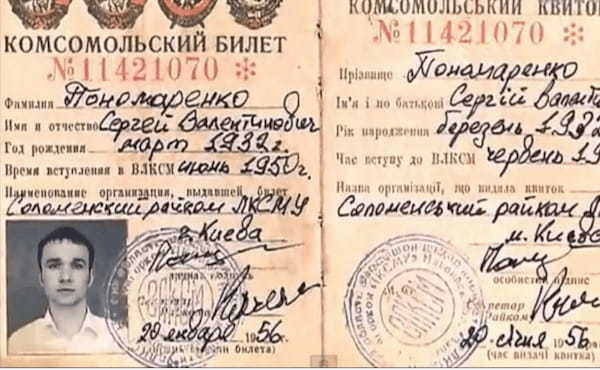 КОМСОМОЛЬСКИЙ БИЛЕТ
№11421070 *
Фамилия Пономаренко
Имя и отчество Сергей Валентинович
Год рождения март 1932г.
Время вступления в ВЛКСМ июнь 1950г.
Наименование организации, выдавшей билет
Соломенский райком ЛКСМУ
г. Киева
20 января 1956г.
билета)
КОМСОМОЛЬСЬКИЙ КВИТОК
№11421070 *
Прізвище Пономаренко
Ім'я і по батькові Сергій Валенти
Рік народження березень 1932
Час вступу до ВЛКСМ червень 19
Назва організації, що видала квиток
Соломенський райком
м. Києва
особистий підпис
20 січня 1956
(час видачі квитка)